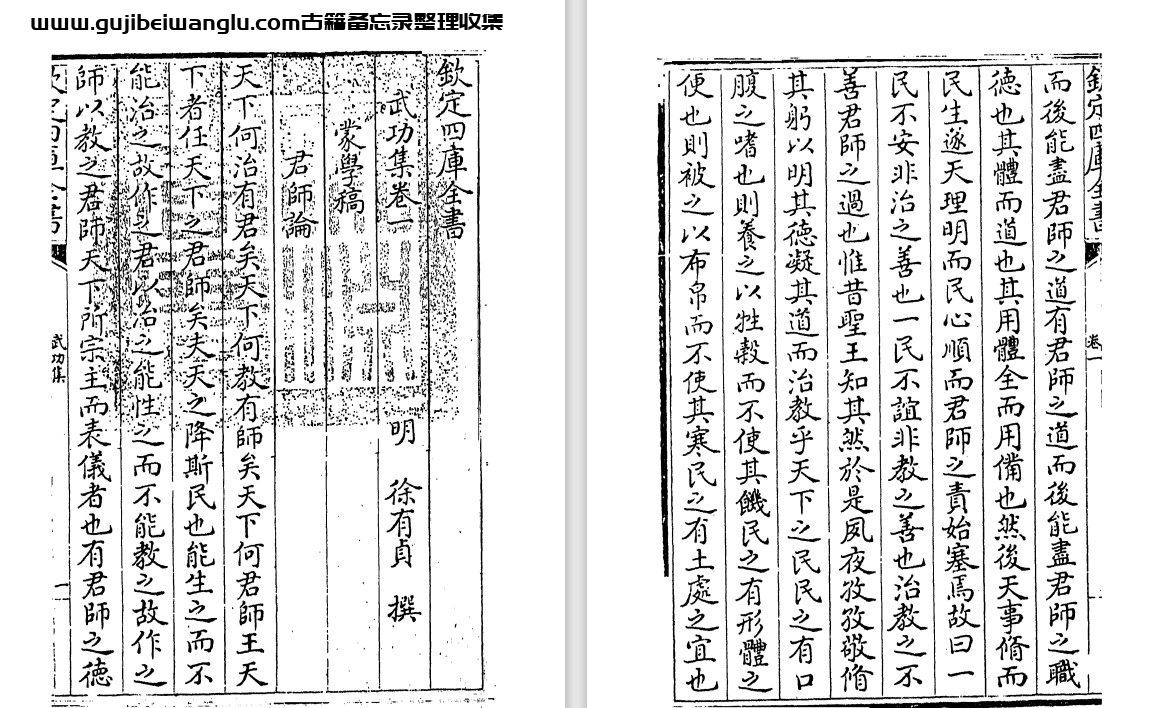 www.gujibeiwanglu.com古籍备忘录整理收集
欽定四庫全書
武功集卷一
明 徐有貞 撰
蒙學稿
君師論
天下何治有君矣天下何教有師矣天下何君師王天
下者任天下之君師矣夫天之降斯民也能生之而不
能治之故作之君以治之能性之而不能教之故作之
師以教之君師天下所宗主而表儀者也有君師之德
欽定四庫全書
武功集
一
欽定四庫全書
卷一
而後能盡君師之道有君師之道而後能盡君師之職
德也其體而道也其用體全而用備也然後天事脩而
民生遂天理明而民心順而君師之責始塞焉故曰一
民不安非治之善也一民不誼非教之善也治教之不
善君師之過也惟昔聖王知其然於是夙夜孜孜敬脩
其躬以明其德凝其道而治教乎天下之民民之有口
腹之嗜也則養之以牲榖而不使其饑民之有形體之
便也則被之以布帛而不使其寒民之有土處之宜也